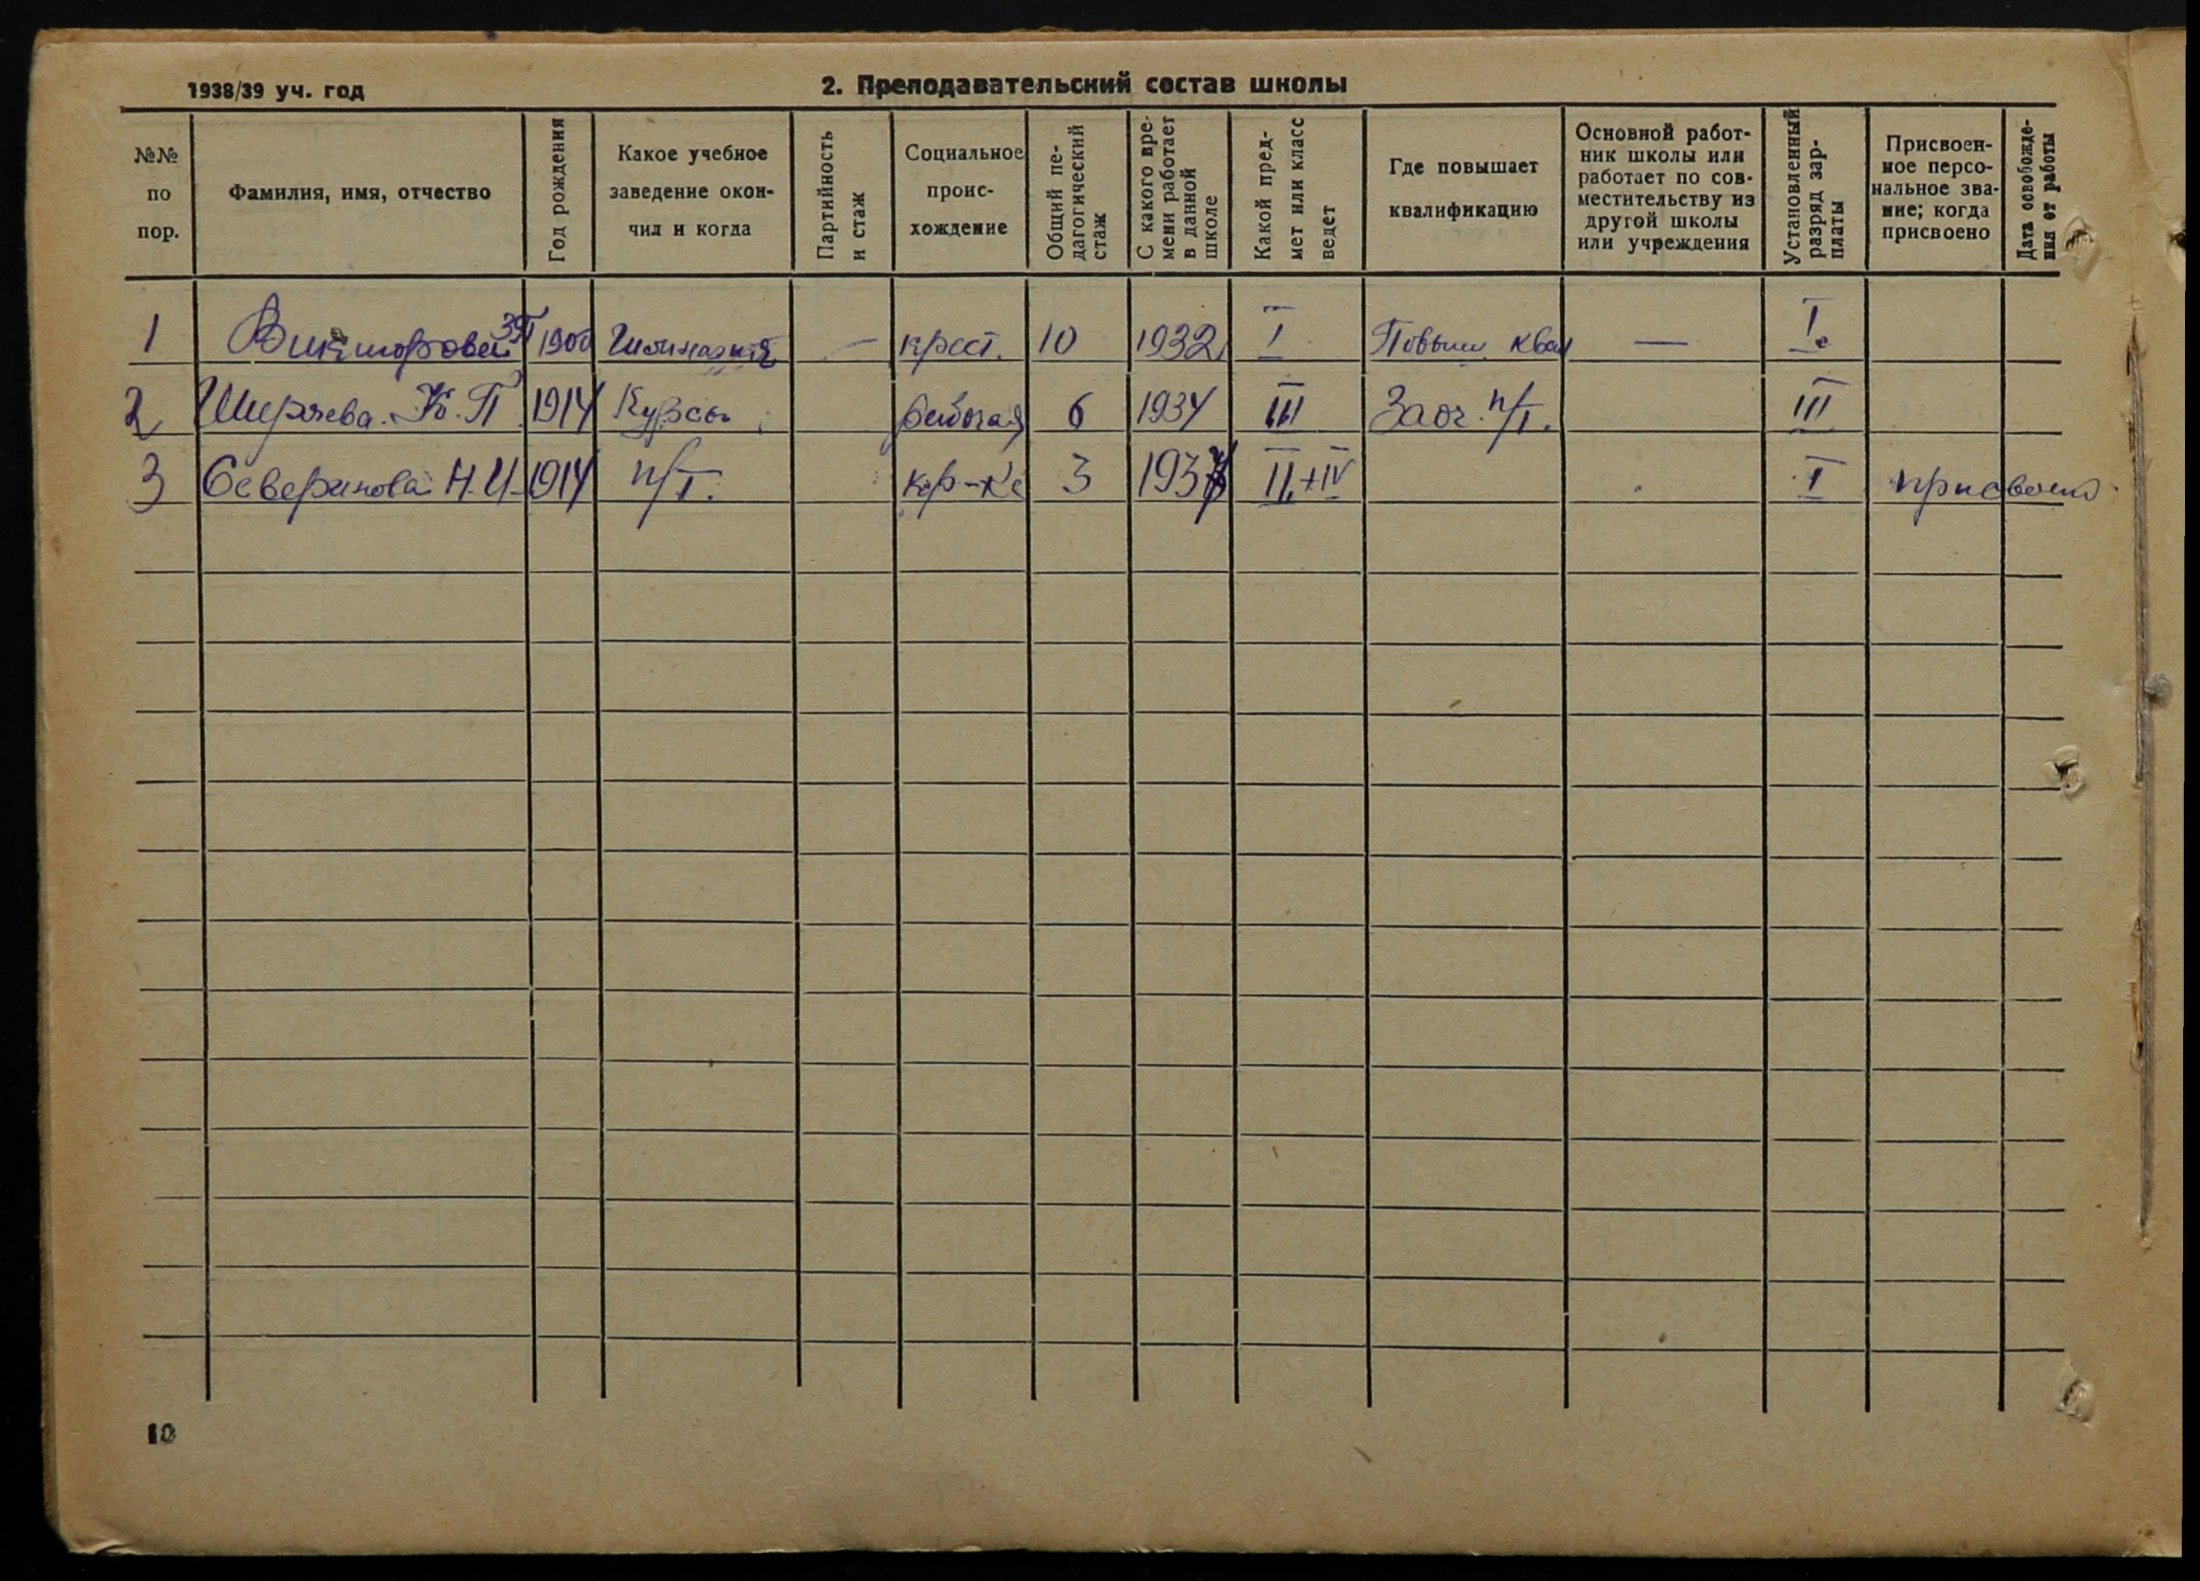 1938/39 уч. год
2. Преподавательский состав школы
№№ по пор.
Фамилия, имя, отчество
Год рождения
Какое учебное заведение окончил и когда
Партийность и стаж
Социальное происхождение
Общий педагогический стаж
С какого времени работает в данной школе
Какой предмет или класс ведет
Где повышает квалификацию
Основной работник школы или работает по совместительству из другой школы или учреждения
Установленный разряд зарплаты
Присвоенное персональное звание; когда присвоено
Дата освобождения от работы
1 Викторова З П Гимназия — крест. 10 1932 I Повыш. квал — I
2 Ширяева К. П 1914 Курсы рабочая 6 1934 III Заоч. п/т. III
3 Северинова Н. И 1914 п/т. кр-ка 3 1937 II+IV I присвоено
10